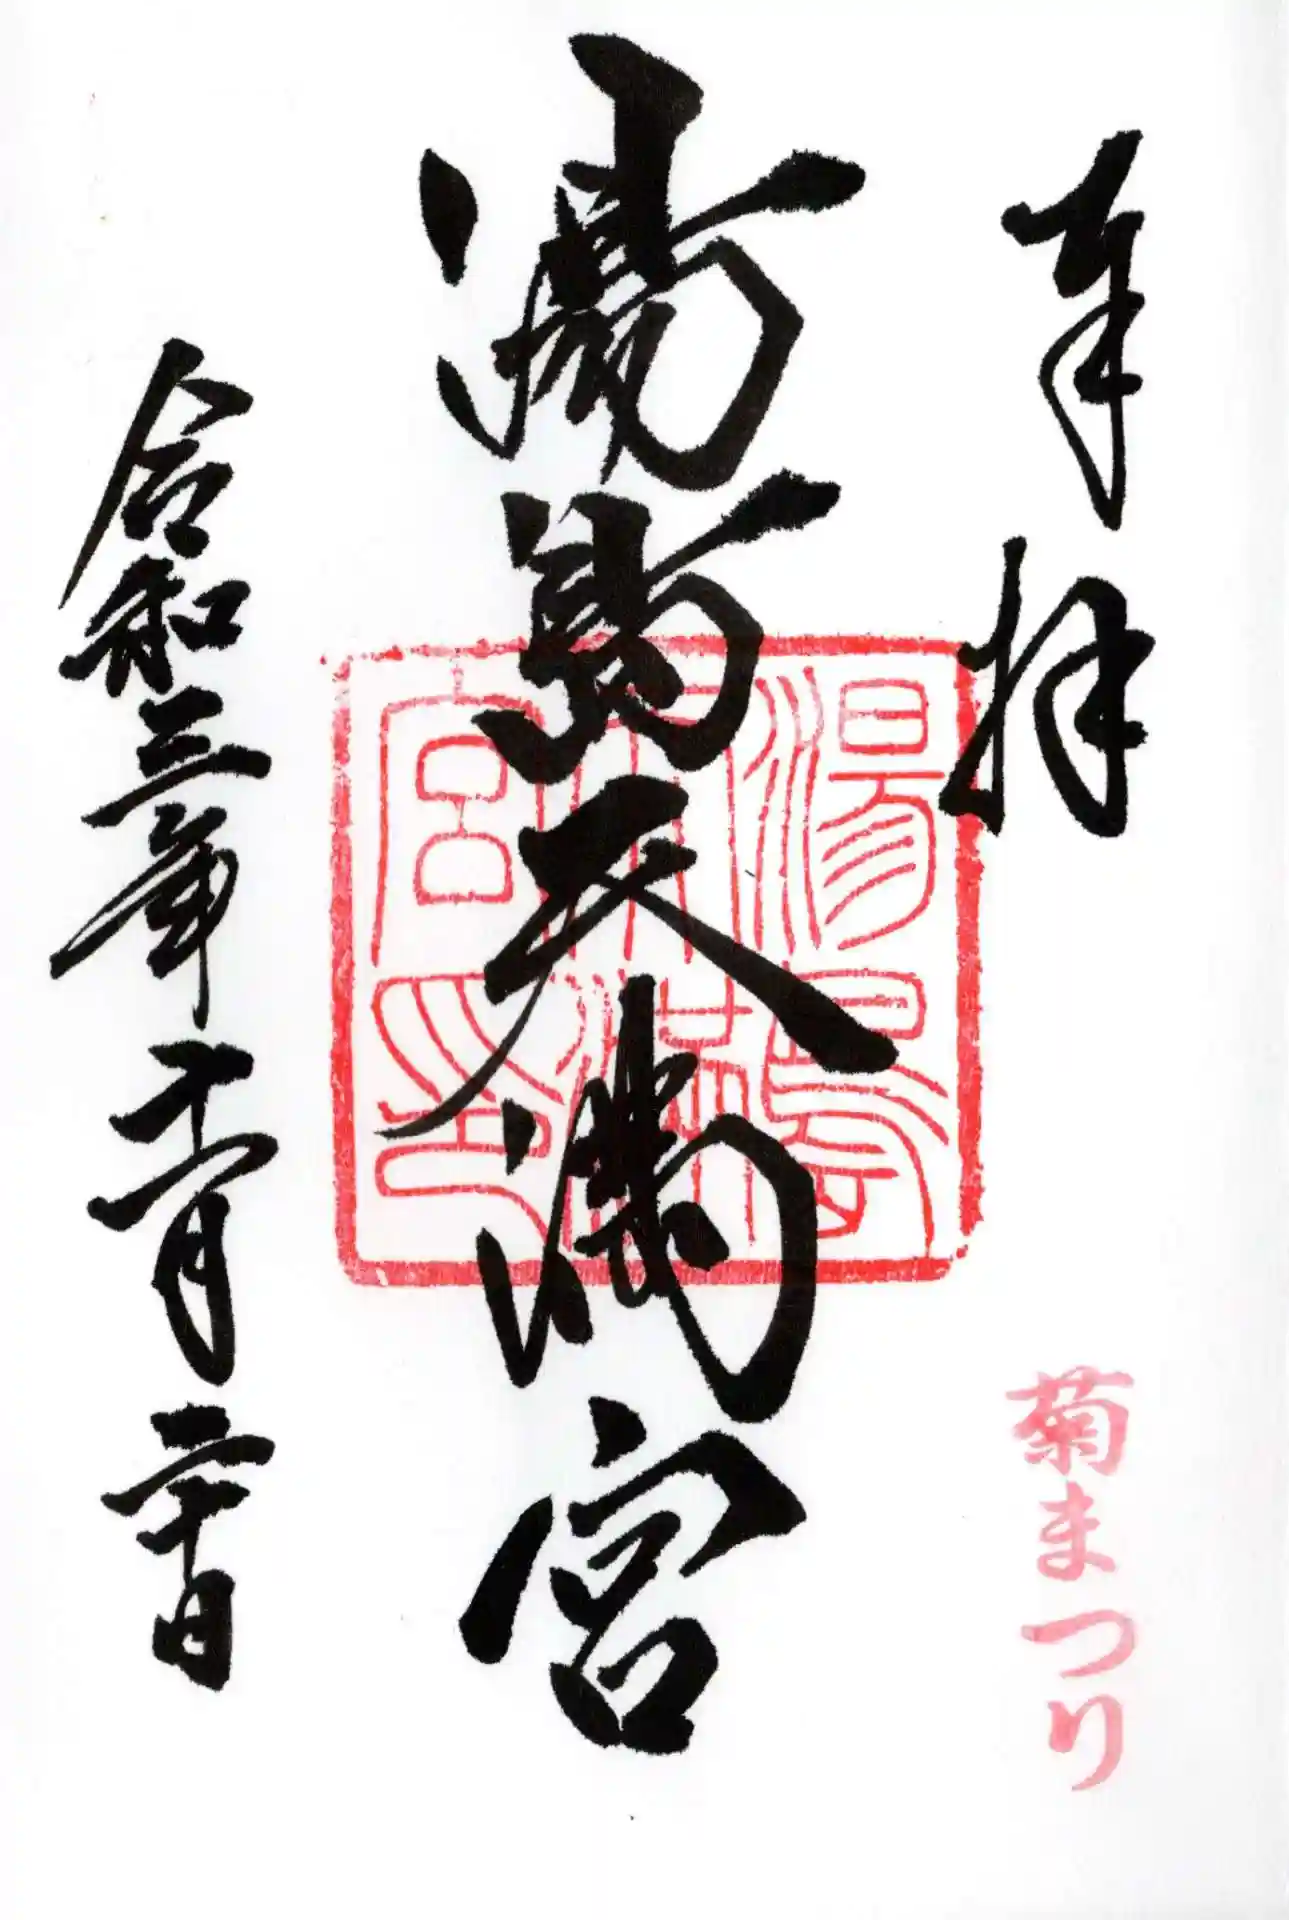 奉拝
菊まつり
湯島天満宮
湯島
天満
宮印
令和三年十一月二十日